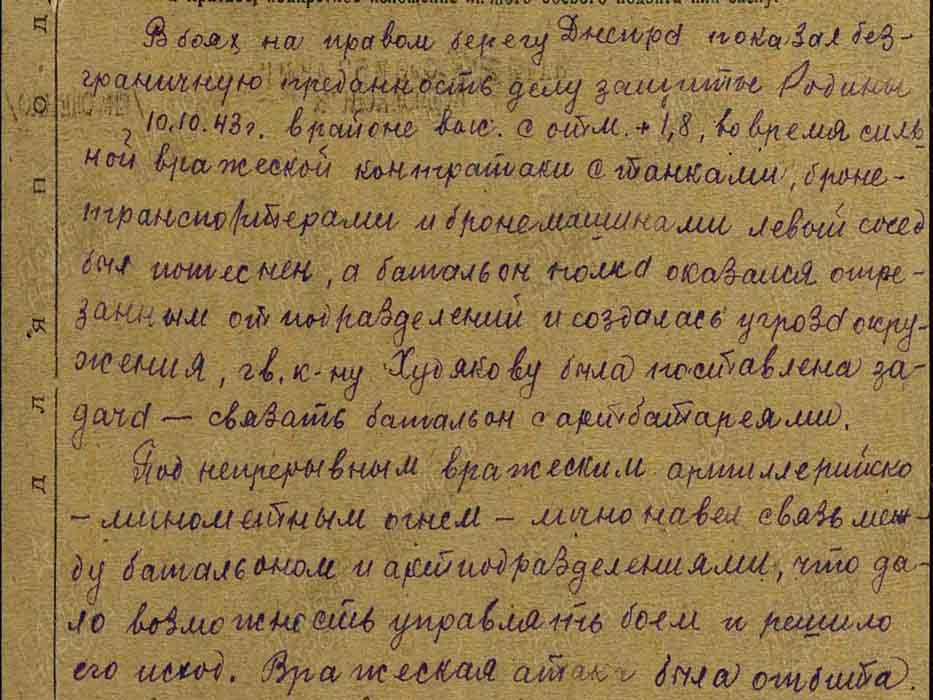 В боях на правом берегу Днепра показал без-
граничную преданность делу защиты Родины
10.10.43г. в районе выс. с отм. +1,8, во время силь-
ной вражеской контратаки с танками, броне-
транспортерами и бронемашинами левый сосед
был потеснен, а батальон полка оказался отре-
занным от подразделений и создалась угроза окру-
жения, гв. к-ну Худякову была поставлена за-
дача — связать батальон с артбатареями.
Под непрерывным вражеским артиллерийско
- минометным огнем - лично навел связь меж-
ду батальоном и артподразделениями, что да-
ло возможность управлять боем и решило
его исход. Вражеская атака была отбита.